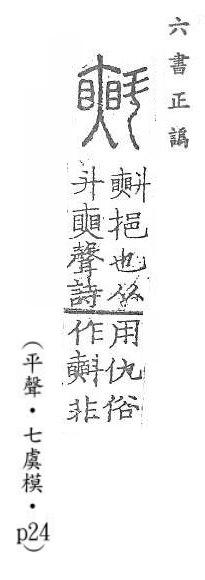 六書正譌
挹也从
斗聲詩
用仇俗
作非
(平聲・七虞模・p24)